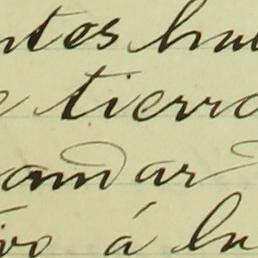 ntes hu
e tierra
andar
ivo á la